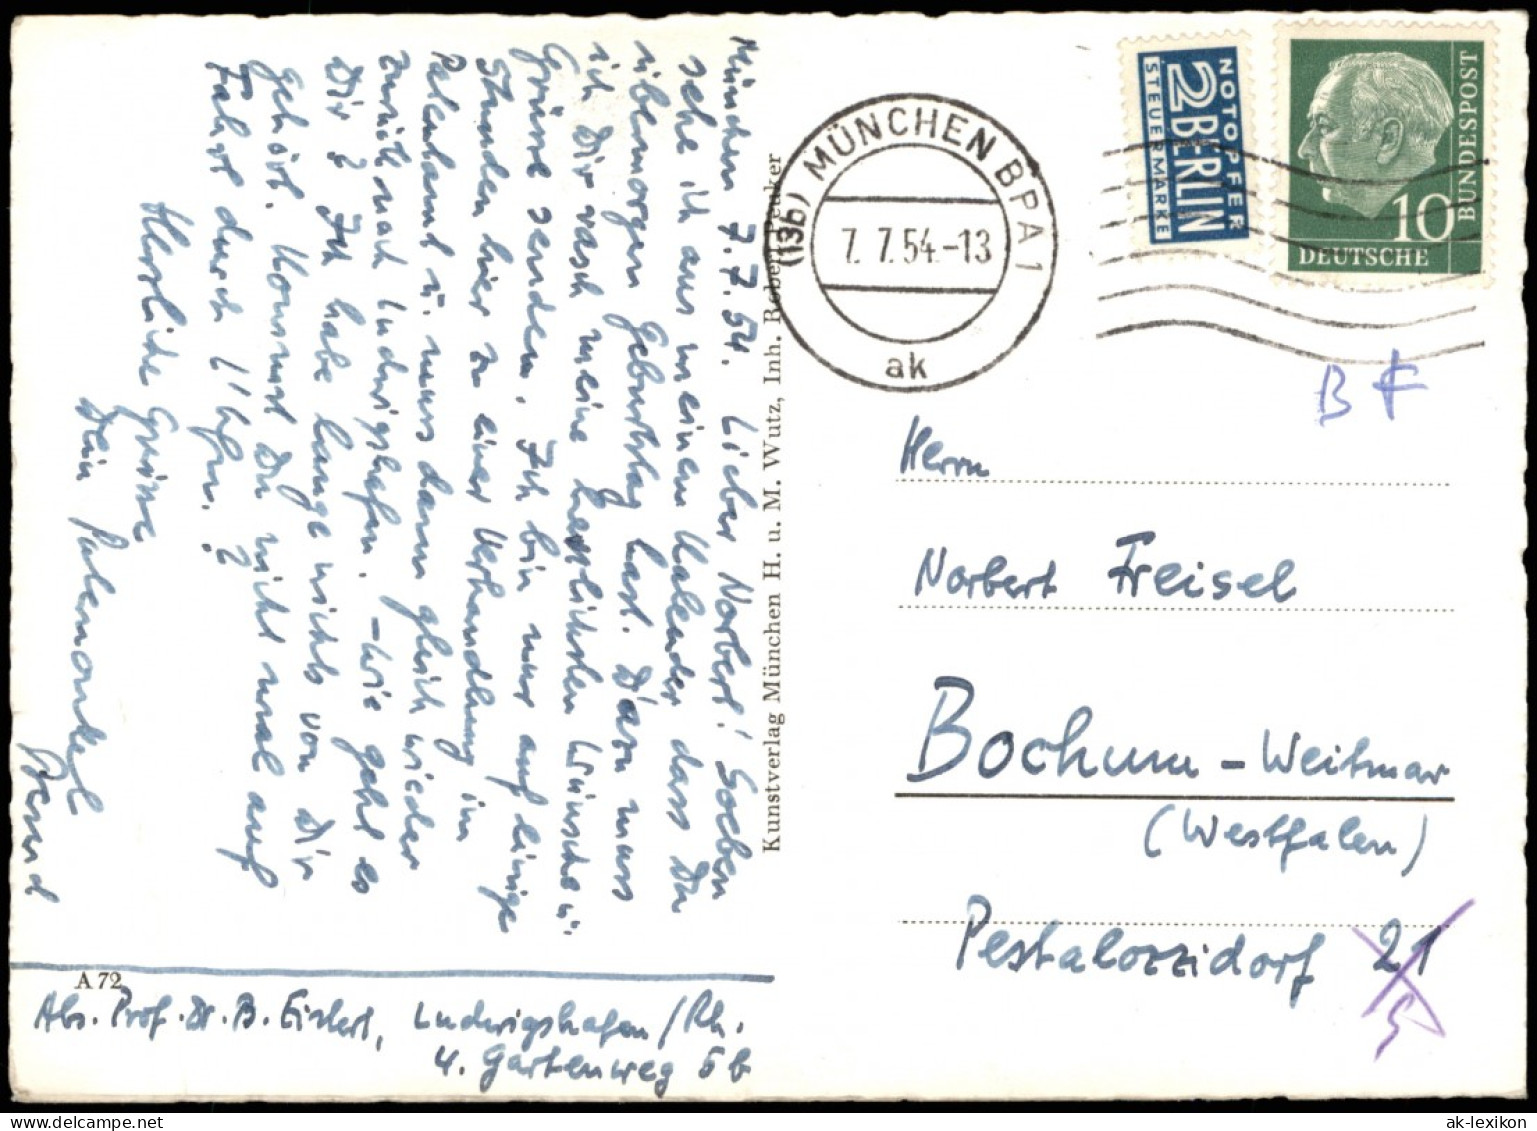 München 7.7.54. Lieber Norbert! Soeben
sehe ich aus meinem Kalender dass Du
übermorgen Geburtstag hast. Da'rum muss
ich Dir rasch meine herzlichsten Wünsche u.
Grüsse senden. Ich bin nur auf einige
Stunden hier zu einer Verhandlung im
Patentamt u. muss dann gleich wieder
zurück nach Ludwigshafen. – Wie geht es
Dir? Ich habe lange nichts von Dir
gehört. Kommst Du nicht mal auf
Fahrt durch L'hfn.?
Herzliche Grüsse
Dein Patenonkel
Bernd
A 72
Abs. Prof. Dr. B. Eistert, Ludwigshafen/Rh.
4. Gartenweg 5b
Kunstverlag München H. u. M. Wutz, Inh. Robert
(13b) MÜNCHEN BPA 1
7. 7. 54.-13
ak
NOTOPFER
2 BERLIN
STEUERMARKE
10
DEUTSCHE
BUNDESPOST
B F
Herrn
Norbert Freisel
Bochum – Weitmar
(Westfalen)
Pestalozzidorf 21
5
ak-lexikon